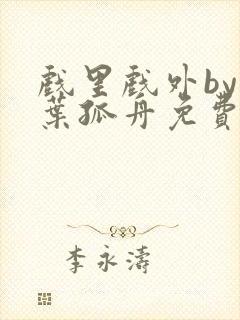 戲里戲外by
葉孤丹免費
李永濤